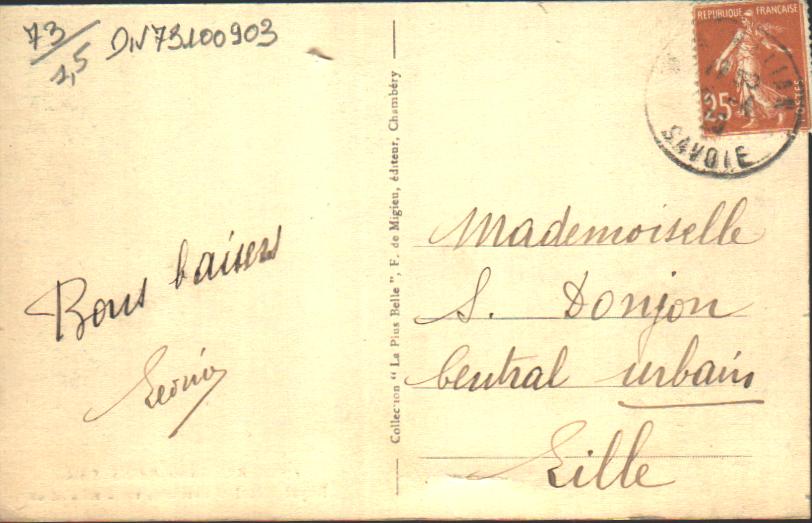 73/1,5 DN73100903
Bons baisers
Leonie
Collection "La Plus Belle", F. de Migieu, éditeur, Chambéry
REPUBLIQUE FRANÇAISE
25
SAVOIE
Mademoiselle
S. Donjon
Central urbain
Lille